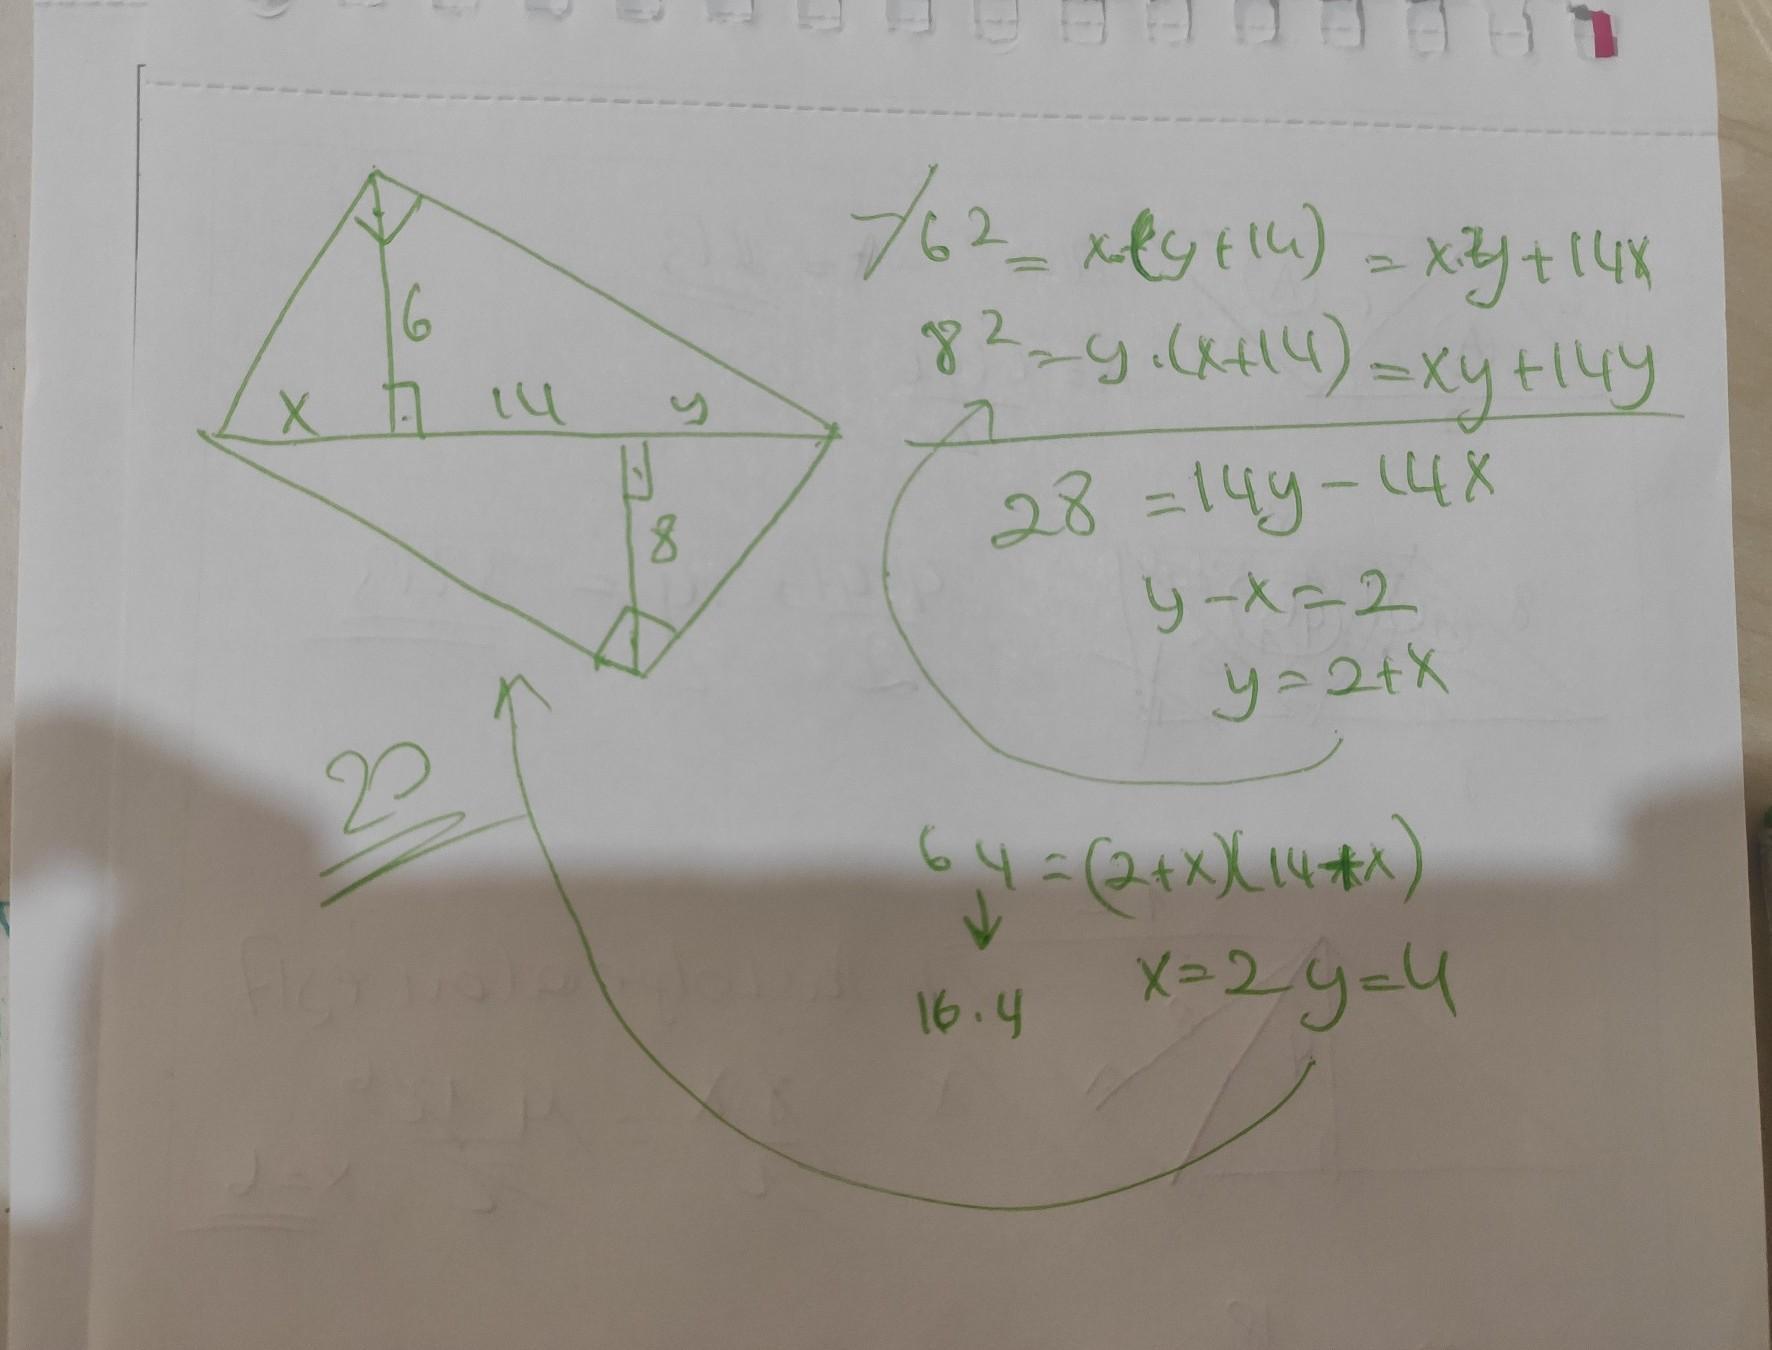 6
x 14 y
8
-/6² = x.(y+14) = x.y+14x
8² = y.(x+14) = xy+14y
28 = 14y-14x
y-x=2
y=2+x
64 = (2+x)(14+x)
16.4
x=2 y=4
20